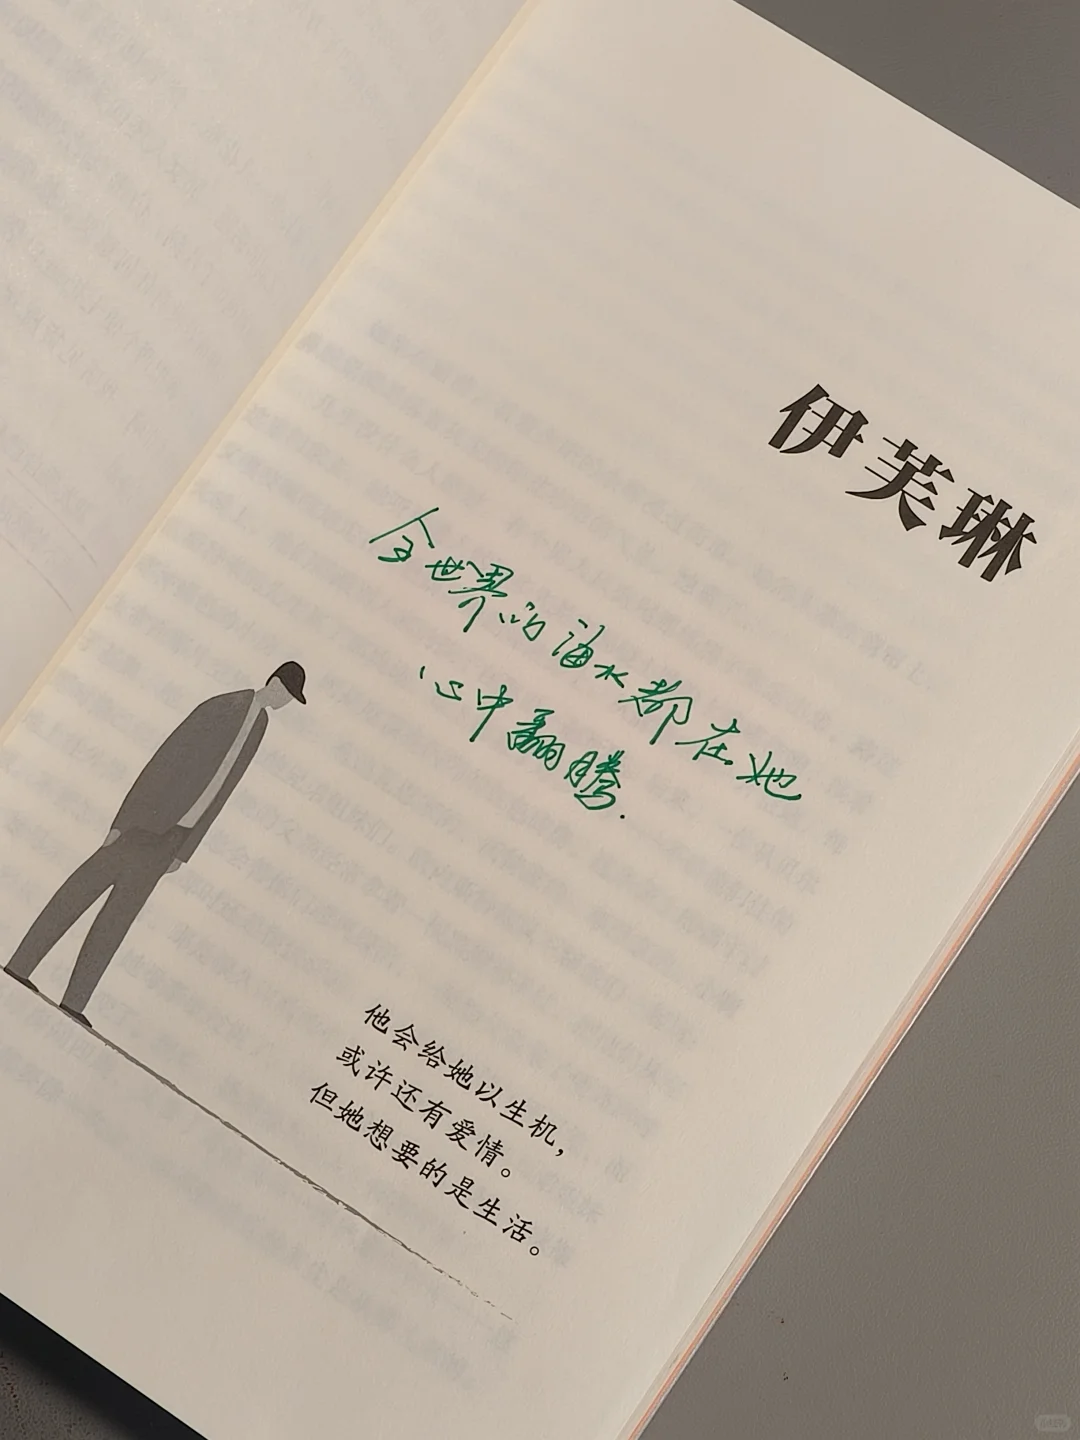 伊芙琳
全世界的海水都在她
心中翻腾.
他会给她以生机，
或许还有爱情。
但她想要的是生活。